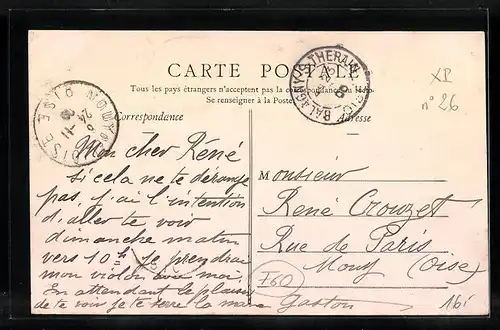 CARTE POSTALE
Tous les pays étrangers n'acceptent pas la correspondance au
Se renseigner à la Poste
Correspondance
Adresse
BALAGNY-S-THERAIN
MOUY OISE
24 -11
XP
n° 26
Mon cher René
si cela ne te dérange
pas, j'ai l'intention
d'aller te voir
dimanche matin
vers 10h je prendrai
mon violon avec moi.
En attendant le plaisir
de te voir je te serre la main
Gaston
Monsieur
René Crouzet
Rue de Paris
Mouy (Oise)
F60
16